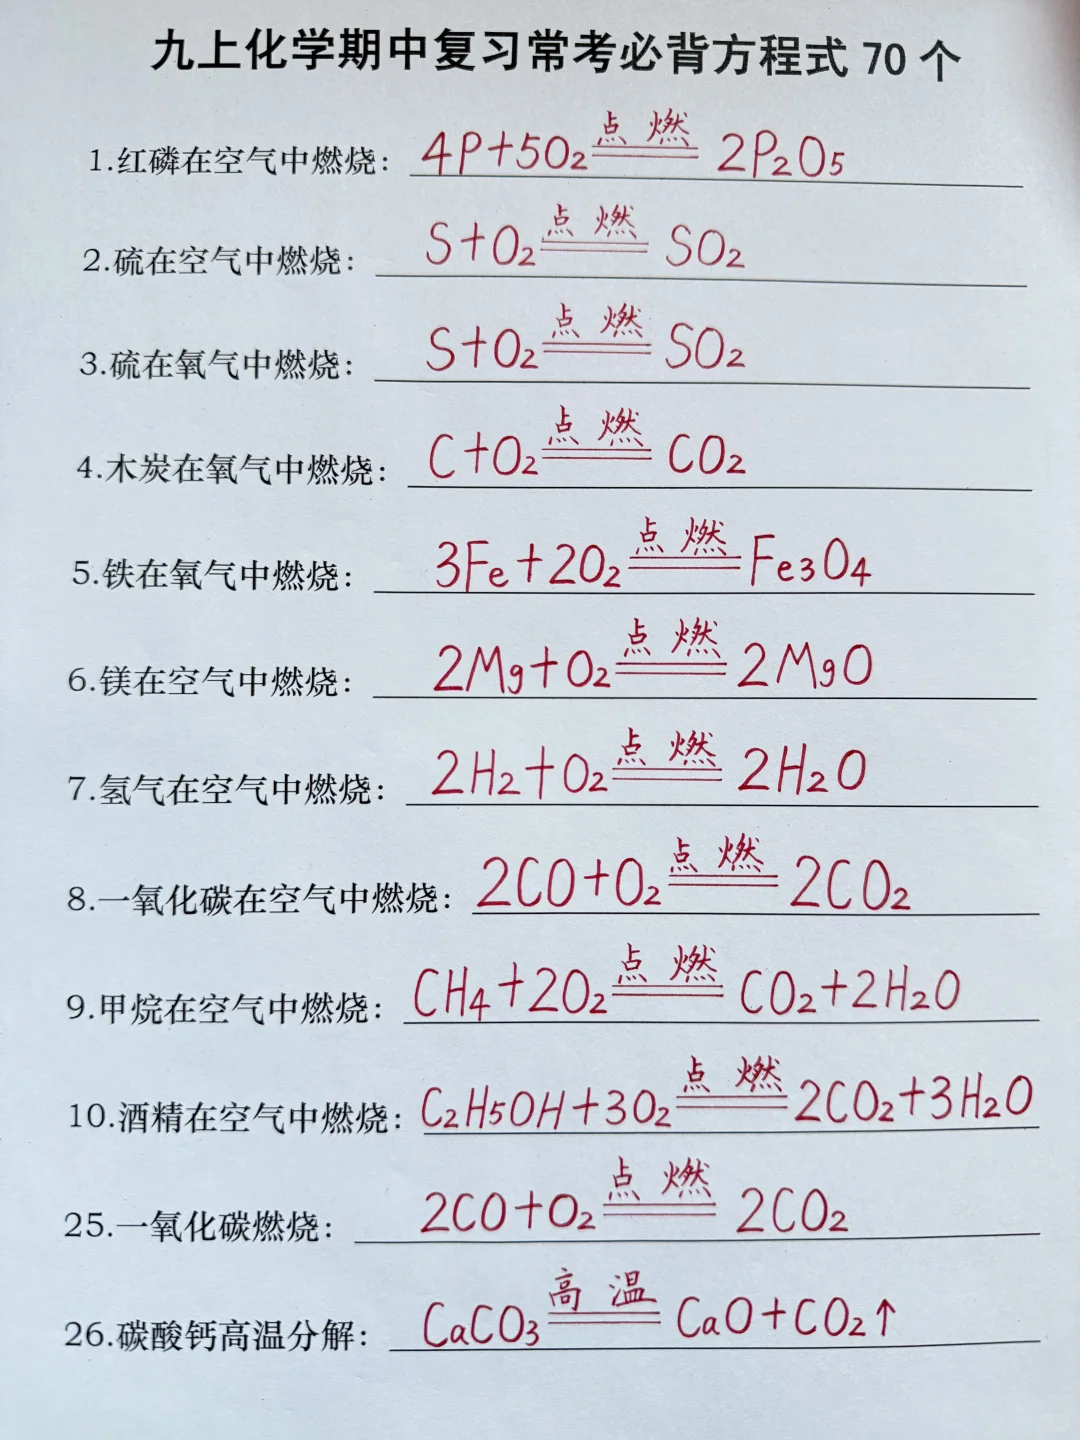 九上化学期中复习常考必背方程式 70 个
1.红磷在空气中燃烧: 4P+5O₂ 点燃 2P₂O₅
2.硫在空气中燃烧: S+O₂ 点燃 SO₂
3.硫在氧气中燃烧: S+O₂ 点燃 SO₂
4.木炭在氧气中燃烧: C+O₂ 点燃 CO₂
5.铁在氧气中燃烧: 3Fe+2O₂ 点燃 Fe₃O₄
6.镁在空气中燃烧: 2Mg+O₂ 点燃 2MgO
7.氢气在空气中燃烧: 2H₂+O₂ 点燃 2H₂O
8.一氧化碳在空气中燃烧: 2CO+O₂ 点燃 2CO₂
9.甲烷在空气中燃烧: CH₄+2O₂ 点燃 CO₂+2H₂O
10.酒精在空气中燃烧: C₂H₅OH+3O₂ 点燃 2CO₂+3H₂O
25.一氧化碳燃烧: 2CO+O₂ 点燃 2CO₂
26.碳酸钙高温分解: CaCO₃ 高温 CaO+CO₂↑